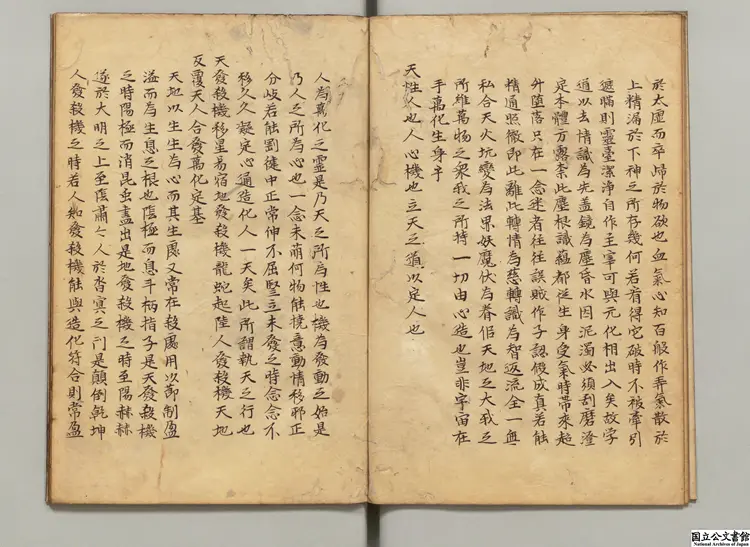 於太虛而卒歸於物欲也血氣心知百般作弄氣散於
上精漏於下神之所存幾何若看得它破時不被牽引
遮瞞則靈臺潔淨自作主宰可與元化相出入矣故学
道以去情識為先盖鏡為塵昏水因泥濁必須刮磨澄
定本體方露柰此塵根識蘊都從生身受氣時帶來起
升墮落只在一念迷者往往誤賊作子認假成真若能
精通照徹即此離此轉情為慈轉識為智返流全一無
私合天火坑變為法界妖魔伏為眷侣天地之大我之
所維萬物之衆我之所持一切由心造也豈非宇宙在
手萬化生身乎
天性人也人心機也立天之道以定人也
人為萬化之靈是乃天之所為性也機為發動之始是
乃人之所為心也一念未萌何物能撓意動情移邪正
分岐若能剛健中正常伸不屈堅立未發之時念念不
移久久凝定心通造化人一天矣此所謂執天之行也
天發殺機移星易宿地發殺機龍蛇起陸人發殺機天地
反覆天人合發萬化定基
天地以生生為心而其生處又常在殺處用以節制盈
溢而為生息之根也陰極而息斗柄指子是天發殺機
之時陽極而消昆虫蟄出是地發殺機之時至陽赫赫
遂於大明之上至陰肅肅入於杳冥之門是顛倒乾坤
人發殺機之時若人知發殺機能與造化符合則常盈
国立公文書館
National Archives of Japan